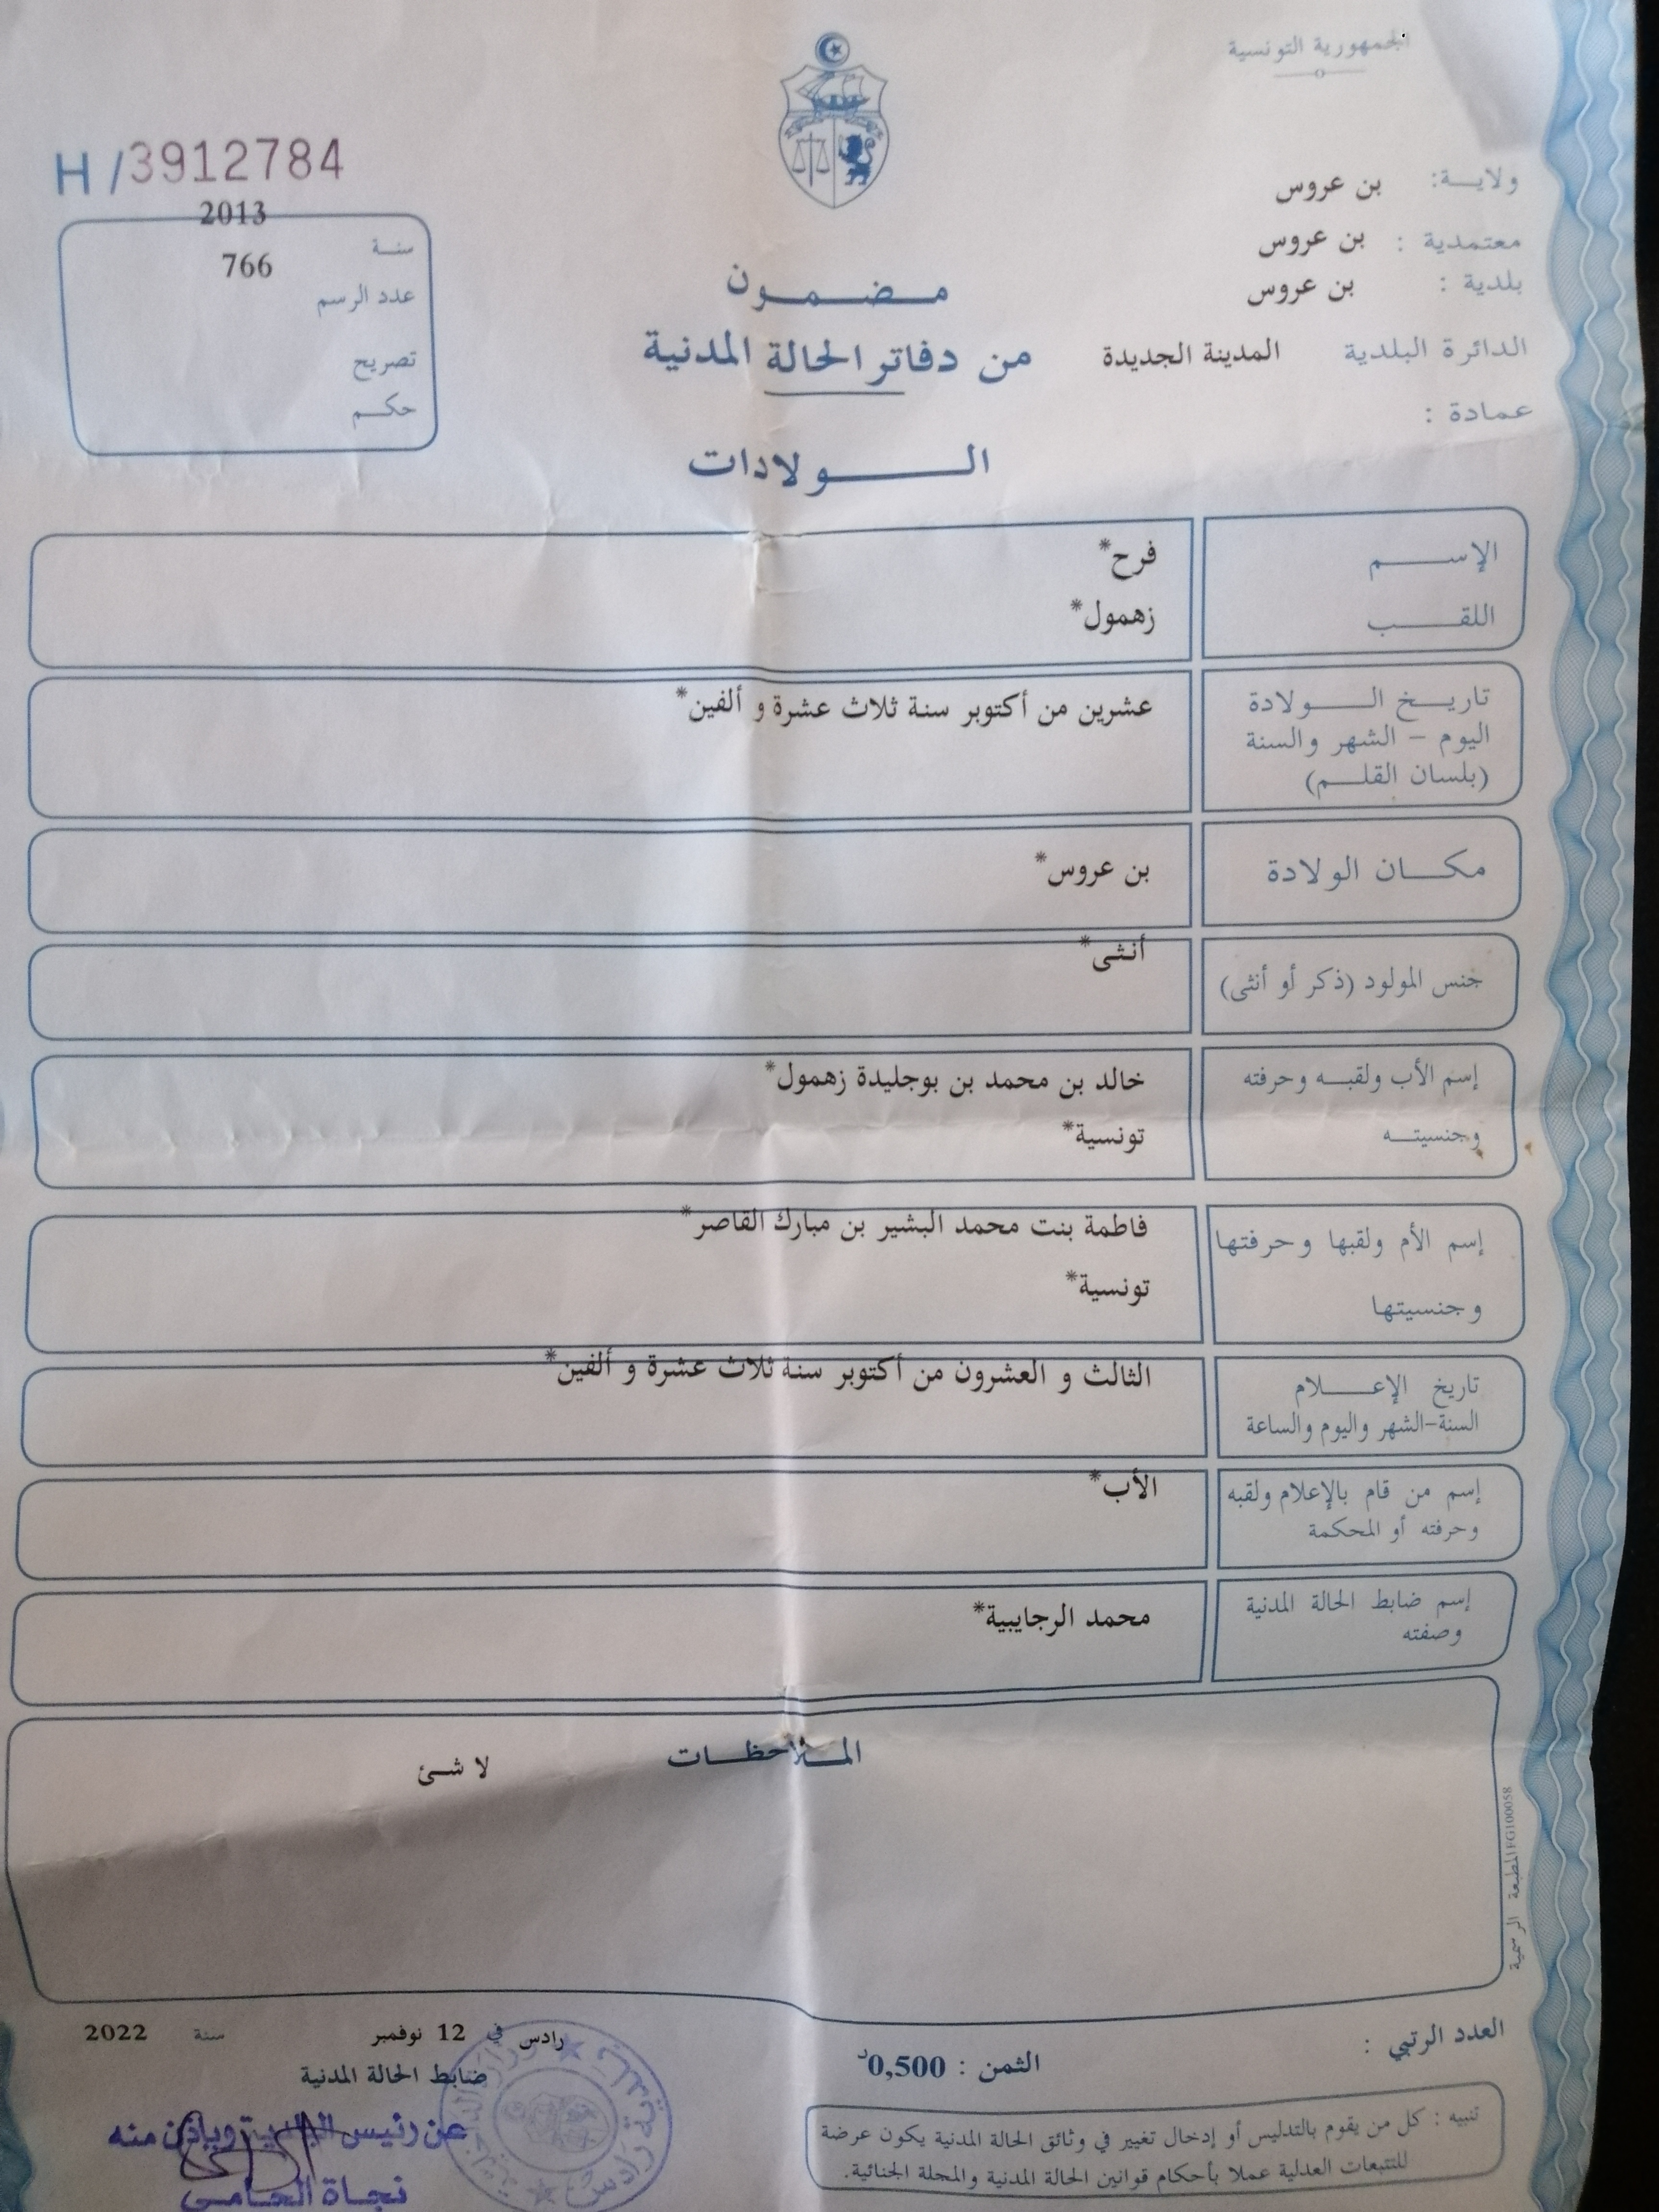 الجمهورية التونسية
H/3912784
ولاية: بن عروس
معتمدية : بن عروس
بلدية : بن عروس
الدائرة البلدية المدينة الجديدة
عمادة :
2013
سنة
766
عدد الرسم
تصريح
حكم
مضمون
من دفاتر الحالة المدنية
الولادات
الإسم فرح*
اللقب زهمول*
تاريخ الولادة عشرين من أكتوبر سنة ثلاث عشرة و ألفين*
اليوم - الشهر والسنة
(بلسان القلم)
مكان الولادة بن عروس*
جنس المولود (ذكر أو أنثى) أنثى*
إسم الأب ولقبه وحرفته خالد بن محمد بن بوجليدة زهمول*
وجنسيته تونسية*
إسم الأم ولقبها وحرفتها فاطمة بنت محمد البشير بن مبارك القاصر*
وجنسيتها تونسية*
تاريخ الإعلام الثالث و العشرون من أكتوبر سنة ثلاث عشرة و ألفين*
السنة-الشهر واليوم والساعة
إسم من قام بالإعلام ولقبه الأب*
وحرفته أو المحكمة
إسم ضابط الحالة المدنية محمد الرجايبية*
وصفته
الملاحظات لا شئ
المطبعة الرسمية FG100058
العدد الرتبي :
الثمن : 0,500د
رادس في 12 نوفمبر سنة 2022
ضابط الحالة المدنية
عن رئيس البلدية وبإذن منه
نجاة الحامي
تنبيه : كل من يقوم بالتدليس أو إدخال تغيير في وثائق الحالة المدنية يكون عرضة
للتتبعات العدلية عملا بأحكام قوانين الحالة المدنية والمجلة الجنائية.